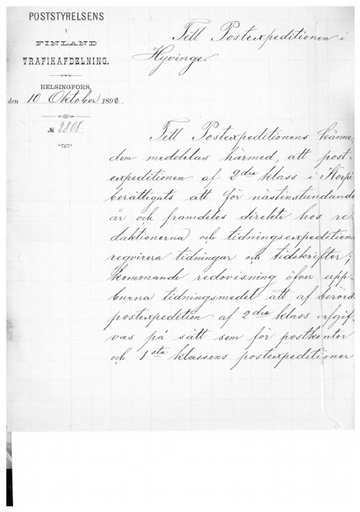 POSTSTYRELSENS
I
FINLAND
TRAFIKAFDELNING.
HELSINGFORS,
den 10 Oktober 1892.
№ 2208.
Till Postexpeditionen i
Hyvinge.
Till Postexpeditionens känne-
dom meddelas härmed, att post-
expeditionen af 2dra klass i Korpi
berättigats att för nästinstundande
år och framdeles direkte hos re-
daktionerna och tidningsexpeditione
reqvirera tidningar och tidskrifter,
kommande redovisning öfver upp-
burna tidningsmedel att af berörd
postexpedition af 2dra klass afgif-
vas på sätt som för postkontor
och 1sta klassens postexpeditioner